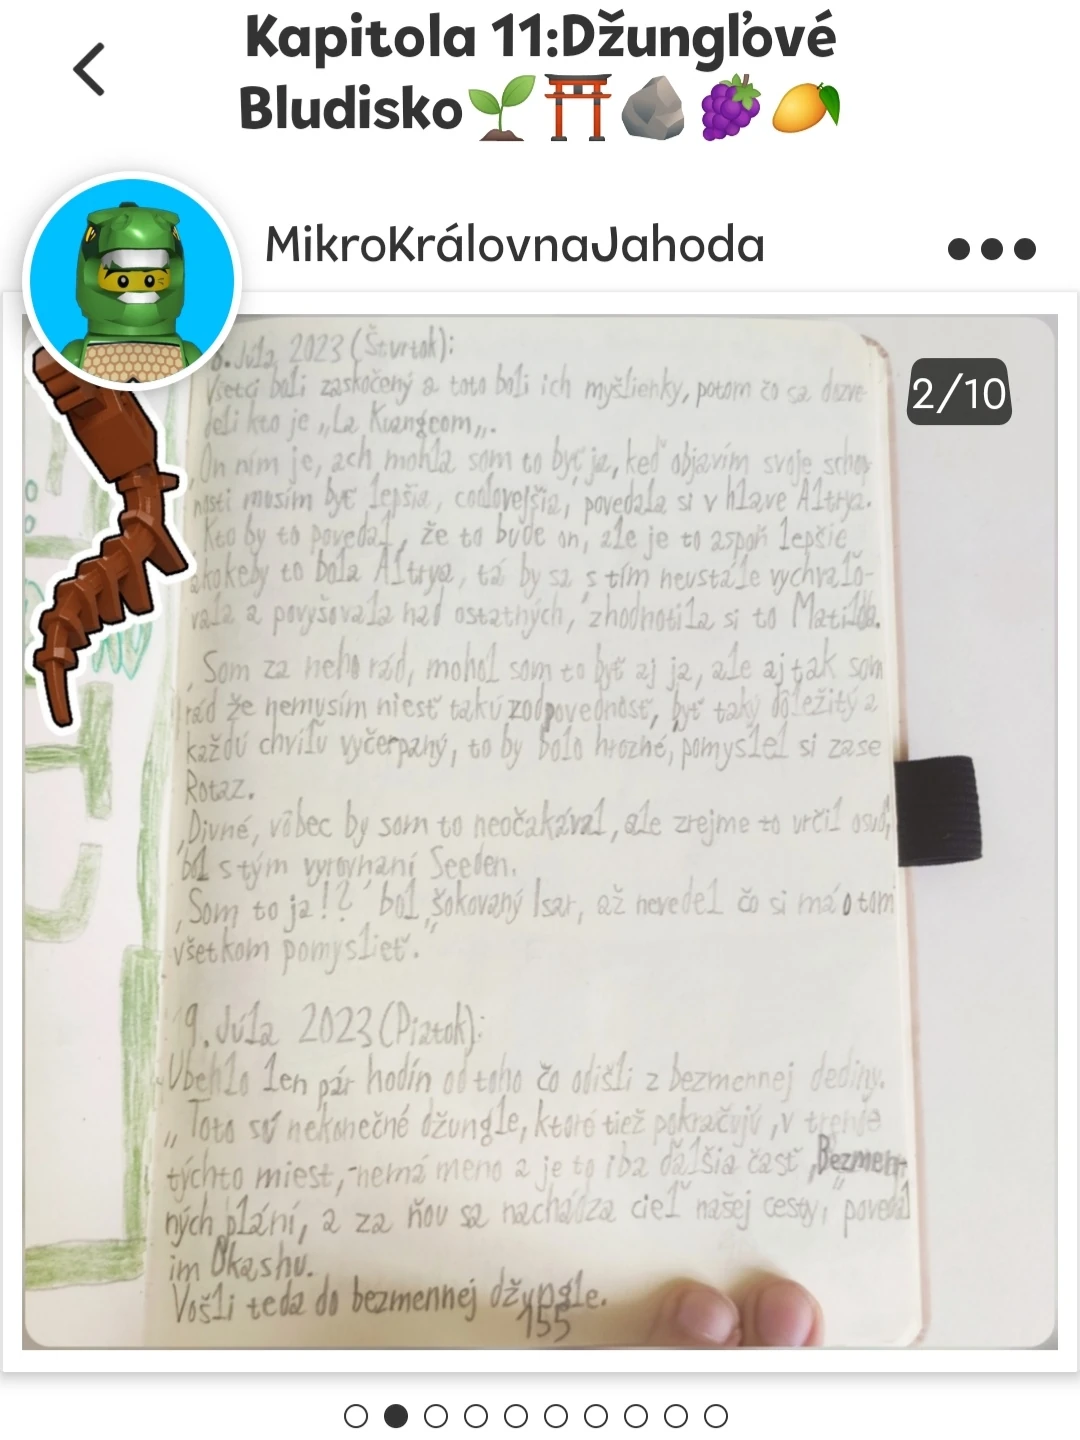 Kapitola 11:Džungľové
Bludisko
MikroKrálovnaJahoda
2/10
. Júla 2023 (Štvrtok):
Všetci boli zaskočený a toto boli ich myšlienky, potom čo sa dozve
deli kto je „La Kuangcom„.
‚On ním je, ach mohla som to byť ja, keď objavím svoje schop
nosti musím byť lepšia, cieľovejšia, povedala si v hlave Altrya.
‚Kto by to povedal, že to bude on, ale je to aspoň lepšie
akokeby to bola Altrya, tá by sa s tím neustále vychvalo-
vala a povyšovala nad ostatných,‘ zhodnotila si to Matilda.
‚Som za neho rád, mohol som to byť aj ja, ale aj tak som
rád že nemusím niesť takú zodpovednosť, byť taký dôležitý a
každú chvíľu vyčerpaný, to by bolo hrozné, pomyslel si zase
Rotaz.
‚Divné, vôbec by som to neočakával, ale zrejme to určil osud,
bol s tým vyrovnaní Seeden.
‚Som to ja!?‘ bol šokovaný Isar, až nevedel čo si má o tom
všetkom pomyslieť.“
9. Júla 2023 (Piatok):
Ubehlo len pár hodín od toho čo odišli z bezmennej dediny.
„Toto sú nekonečné džungle, ktoré tiež pokračujú, v
týchto miest, nemá meno a je to iba ďalšia časť ‚Bezmen-
ných plání, a za ňou sa nachádza cieľ našej cesty,“ povedal
im Okashu.
Vošli teda do bezmennej džungle.
155